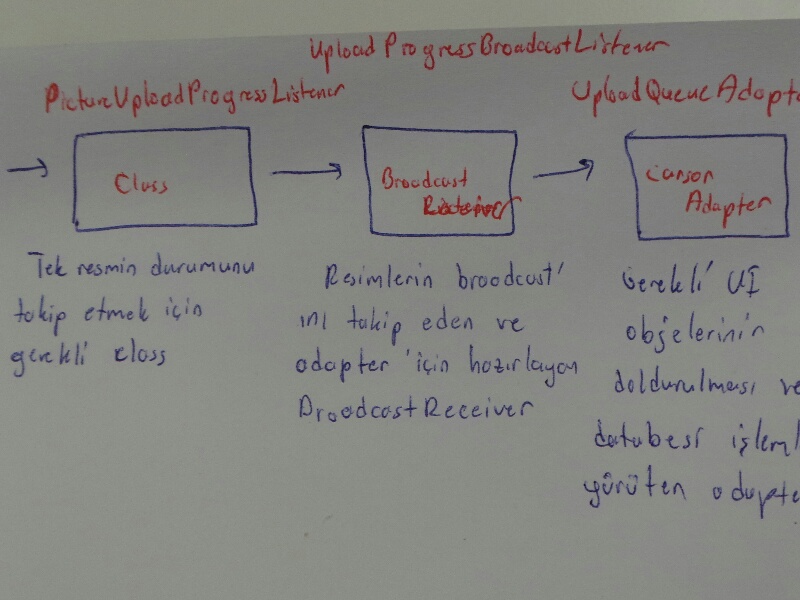 UploadProgressBroadcastListener
PictureUploadProgressListener
UploadQueueAdapte
Class
Broadcast
Receiver
Cursor
Adapter
Tek resmin durumunu
takip etmek için
gerekli class
Resimlerin broadcast'
ını takip eden ve
adapter için hazırlayan
BroadcastReceiver
Gerekli UI
objelerinin
doldurulması ve
databesi işleml
yürüten adapte